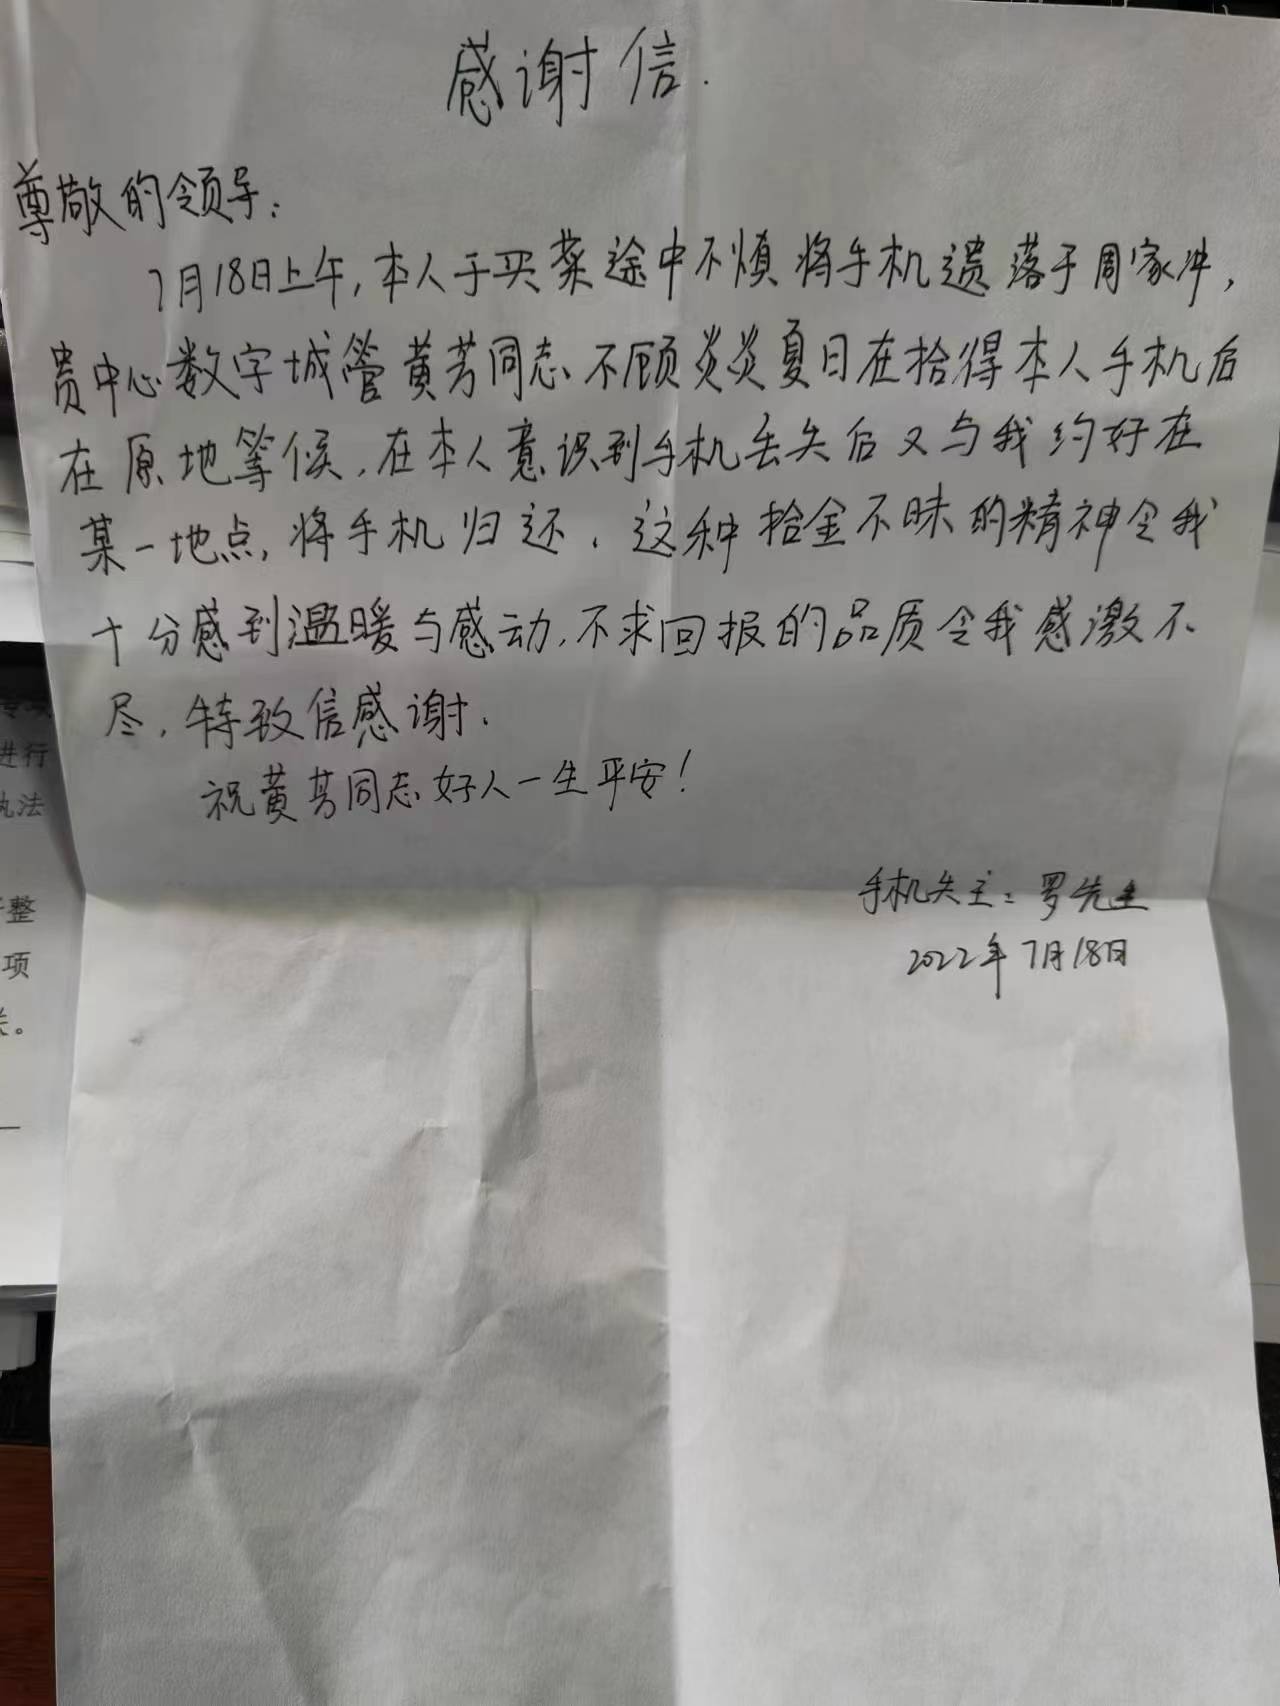 感谢信.
尊敬的领导:
7月18日上午,本人于买菜途中不慎将手机遗落于周家冲,
贵中心数字城管黄芳同志不顾炎炎夏日在拾得本人手机后
在原地等候,在本人意识到手机丢失后又与我约好在
某一地点,将手机归还.这种拾金不昧的精神令我
十分感到温暖与感动,不求回报的品质令我感激不
尽,特致信感谢.
祝黄芳同志好人一生平安!
手机失主:罗先生
2022年7月18日
专项
进行
执法
整
项